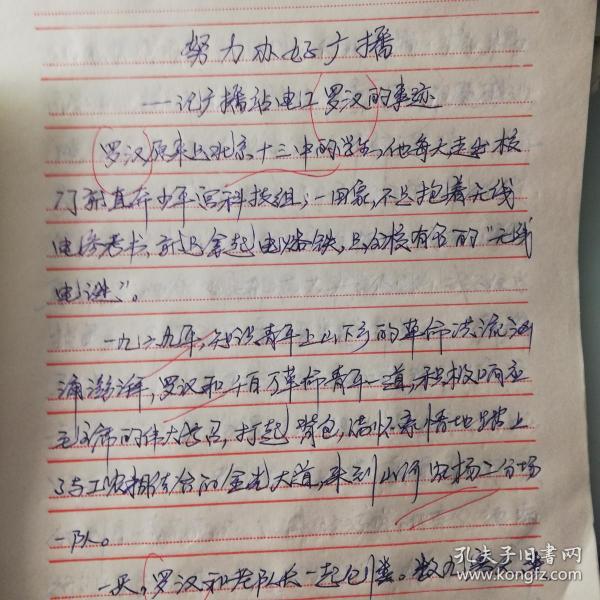 努力办好广播
——记广播站电工罗汉的事迹
罗汉原来是北京十三中的学生，他每天走出校
门就直奔少年宫科技组；一回家，不是抱着无线
电参考书，就是拿起电烙铁，是全校有名的“无线
电迷”。
一九六九年，知识青年上山下乡的革命洪流汹
涌澎湃，罗汉和千百万革命青年一道，积极响应
毛主席的伟大号召，打起背包，满怀豪情地踏上
了与工农相结合的金光大道，来到山河农场二分场
一队。
一天，罗汉和老队长一起刨粪。数九
孔夫子旧书网
www.kongfz.com